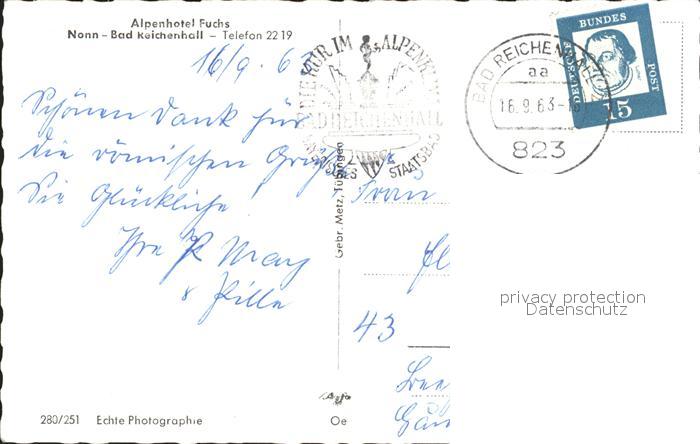 Alpenhotel Fuchs
Nonn – Bad Reichenhall – Telefon 22 19
16/9. 63
Schönen Dank für
die römischen Grüße
Sie Glückliche
Ihre
&
280/251 Echte Photographie
Oe
Gebr. Metz, Tübingen
DIE KUR IM ALPENKLIMA
BAD REICHENHALL
BAYERISCHES STAATSBAD
BAD REICHENHALL
aa
16.9.63-18
823
DEUTSCHE BUNDES POST
15
Frau
43
privacy protection
Datenschutz